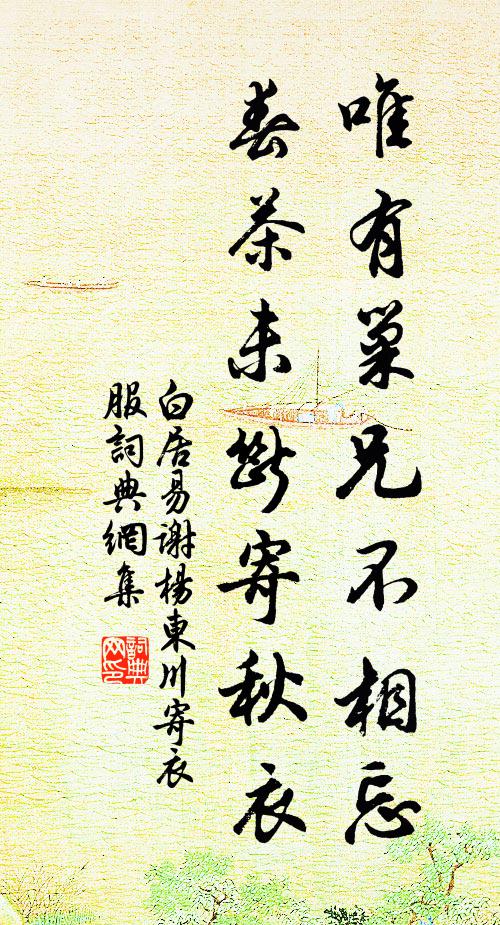 唯有巢兄不相忘
春茶未斷寄秋衣
白居易謝楊東川寄衣
服詞典網集
詞典
网印